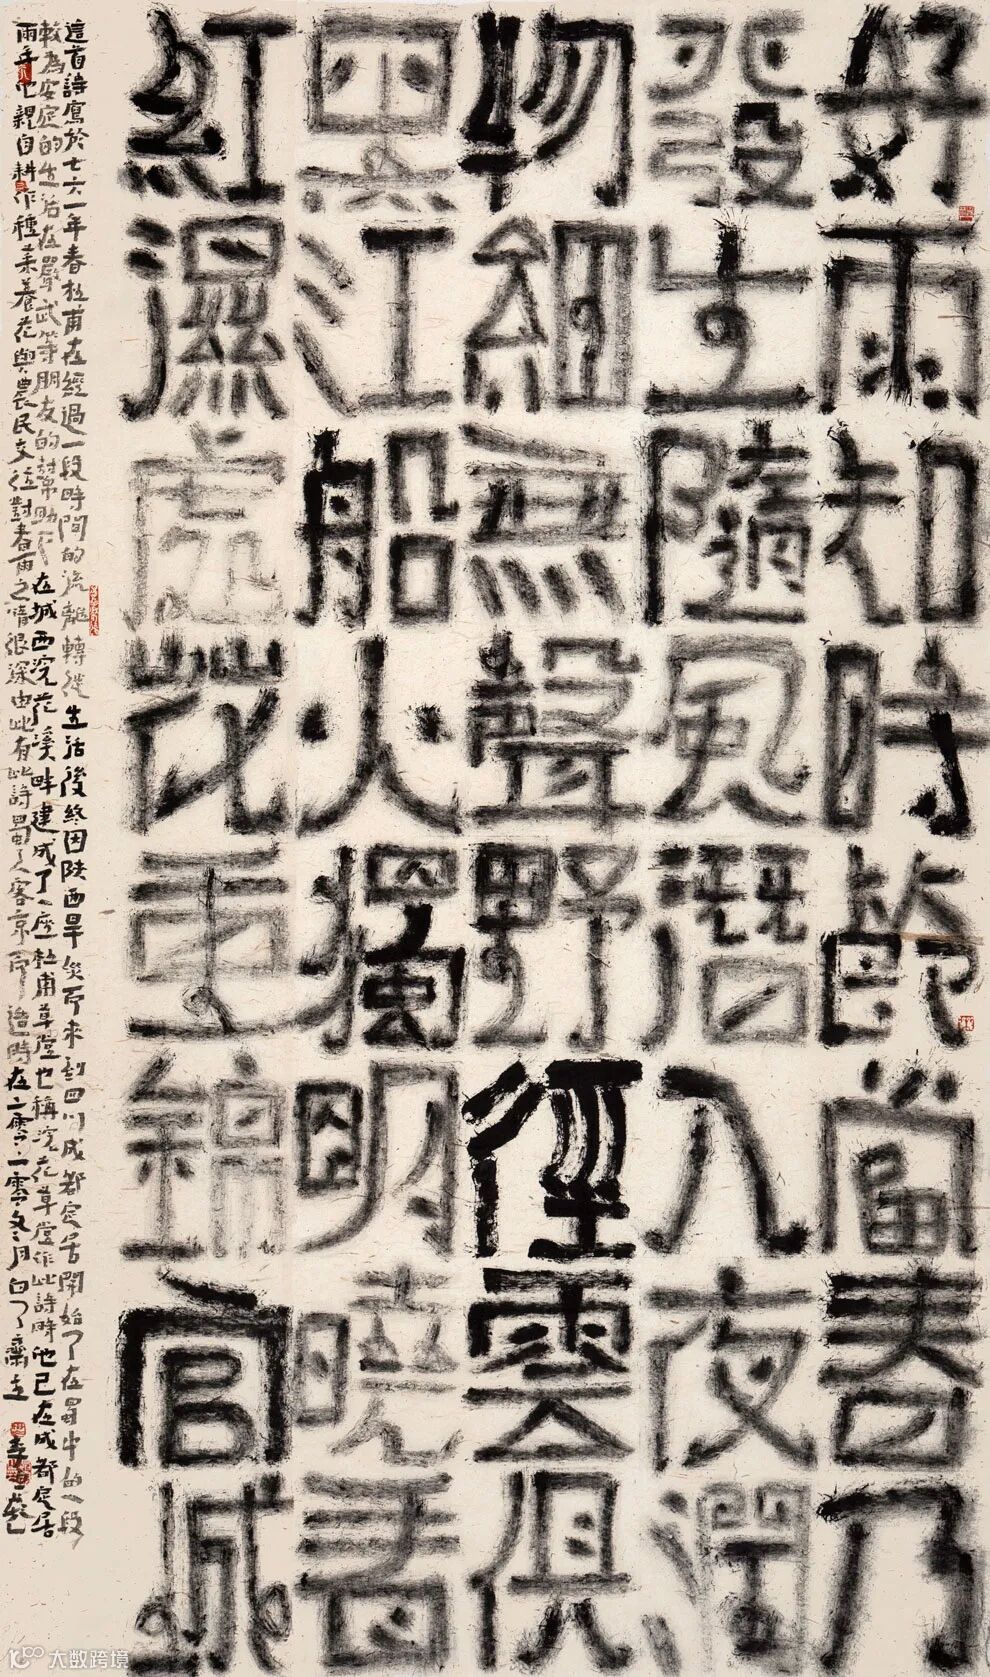 好雨知時節當春乃
發生隨風潛入夜潤
物細無聲野徑雲俱
黑江船火獨明曉看
紅濕處花重錦官城
這首詩寫於七六一年春杜甫在經過一段時間的流離轉徙生活後終因陝西旱災而來到四川成都定居開始了在蜀中的一段
較為安定的生活在嚴武等朋友的幫助下在城西浣花溪畔建成了一座杜甫草堂也稱浣花草堂作此詩時他已在成都定居
兩年他親自耕作種菜養花與農民交往對春雨之情很深由此有此詩蜀人客京而造時在二零一零冬月白丁齋主
大数跨境